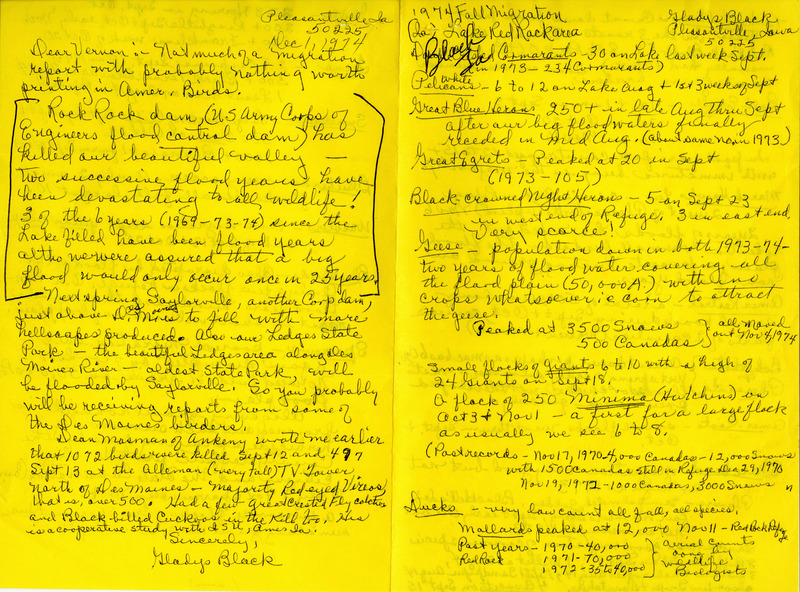 Pleasantville, Ia
50225
Dec 1, 1974
Dear Vernon:- Not much of a migration
report with probably nothing worth
printing in Amer. Birds.
Rock Rock dam, (US Army Corps of
Engineers flood control dam) has
killed our beautiful valley —
two successive flood years have
been devastating to all wildlife!
3 of the 6 years (1969-73-74) since the
Lake filled have been flood years
altho we were assured that a big
flood would only occur once in 25 years.
Next spring Saylorville, another Corp dam,
just above Des Moines to fill with more
hellscapes produced. Also our Ledges State
Park — the beautiful Ledges area along Des
Moines River — oldest State Park, will
be flooded by Saylorville. So you probably
will be receiving reports from some of
the Des Moines birders.
Dean Mosman of Ankeny wrote me earlier
that 1072 birds were killed Sept 12 and 497
Sept 13 at the Alleman (very tall) TV Tower,
north of Des Moines — majority Red-eyed Vireos,
that is, over 500. Had a few Great Crested Flycatchers
and Black-billed Cuckoos in the kill too. His
is a cooperative study with ISU, Ames, Ia.
Sincerely,
Gladys Black
1974 Fall Migration
Ia; Lake Red Rock area
Gladys Black
Pleasantville, Iowa
50225
Black
Ia
Cormorants - 30 on Lake last week Sept.
(in 1973 - 234 Cormorants)
White
Pelicans - 6 to 12 on Lake Aug + 1st 3 weeks of Sept
Great Blue Herons 250+ in late Aug thru Sept
after our big flood waters finally
receded in Mid Aug. (about same no. in 1973)
Great Egrets - Peaked at 20 in Sept
(1973 - 105)
Black-crowned Night Herons - 5 on Sept 23
in west end of Refuge. 3 in east end.
Very scarce!
Geese - population down in both 1973-74-
two years of flood water covering all
the flood plain (50,000A) with no
crops whatsoever ie corn to attract
the geese.
Peaked at 3500 Snows
500 Canadas
all moved
out Nov 4, 1974
Small flocks of Giants 6 to 10 with a high of
24 Giants on Sept 18.
A flock of 250 Minima (Hutchins) on
Oct 3 + Nov 1 - a first for a large flock
as usually we see 6 to 8.
(Past records - Nov 17, 1970 - 4,000 Canadas - 12,000 Snows
with 1500 Canadas still in Refuge Dec 29, 1970
Nov 19, 1972 - 1000 Canadas, 3000 Snows
Ducks - very low count all fall, all species.
Mallards peaked at 12,000 Nov 11 - Red Rock Refuge
Past years - 1970 - 40,000
Red Rock 1971 - 70,000
1972 - 35 to 40,000
aerial counts
done by
wildlife
Biologists